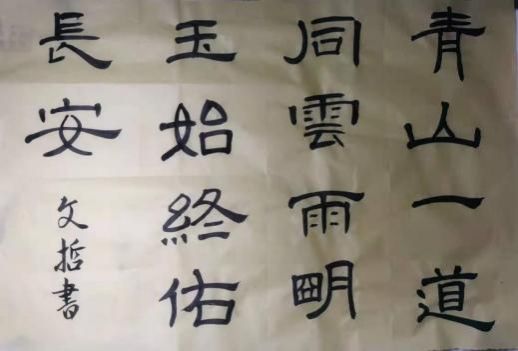 青山一道
同雲雨朙
玉始終佑
長安
文哲書